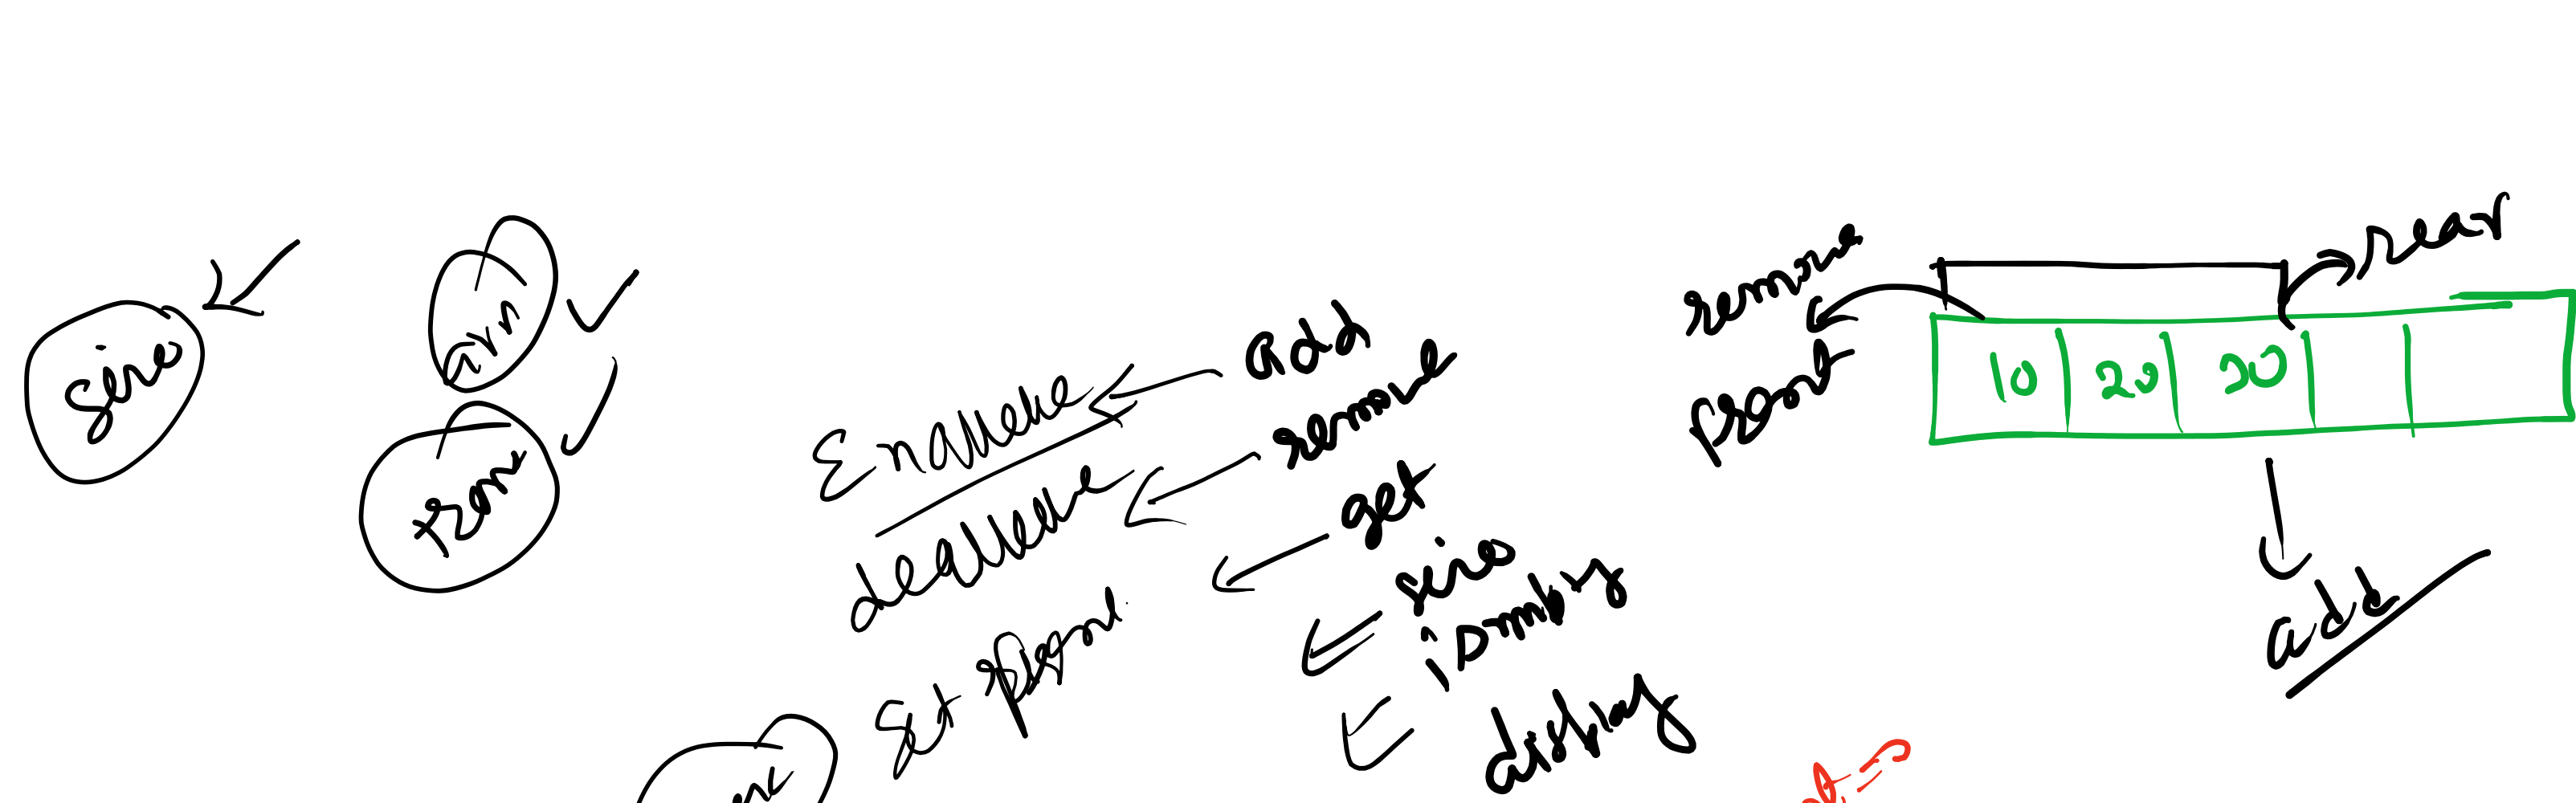 size
arr
Enqueue
dequeue
get front
add
remove
get
size
isempty
display
remove
front
rear
10 20 30
add